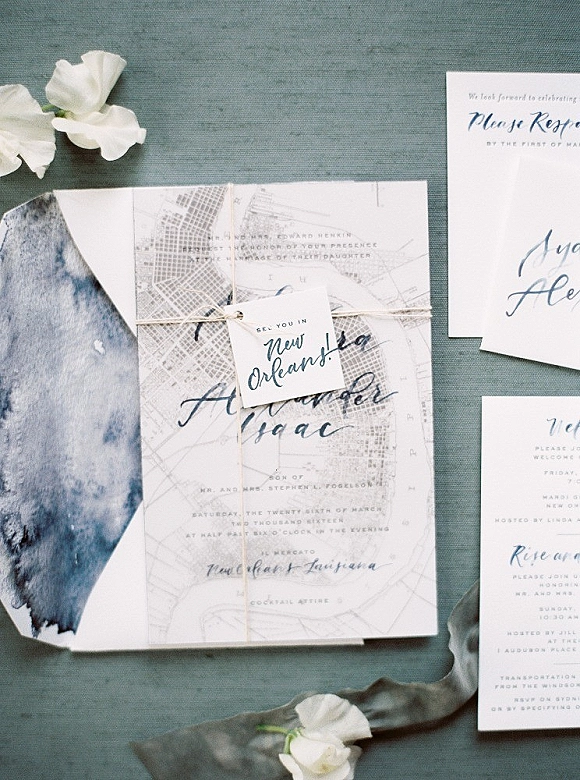 MR. AND MRS. EDWARD HENKIN
REQUEST THE HONOR OF YOUR PRESENCE
AT THE MARRIAGE OF THEIR DAUGHTER
SEE YOU IN
New
Orleans!
Alexander
Isaac
SON OF
MR. AND MRS. STEPHEN L.
SATURDAY, THE TWENTY SIXTH OF MARCH
TWO THOUSAND SIXTEEN
AT HALF PAST SIX O'CLOCK IN THE EVENING
IL MERCATO
New Orleans, Louisiana
COCKTAIL ATTIRE
We look forward to celebrating
Please Resp
BY THE FIRST OF MA
Syd
Ale
Wel
PLEASE JO
WELCOME
FRIDAY,
7:0
WARDI
NEW OR
HOSTED BY LINDA
Rise and
PLEASE JOIN
HONOR
MR. AND MRS.
SUNDAY
10:30 A
HOSTED BY JILL
AT THE
1 AUDUBON PLACE
TRANSPORTATION
FROM THE WINDSO
RSVP TO SYDN
OR BY SPECIFYING O